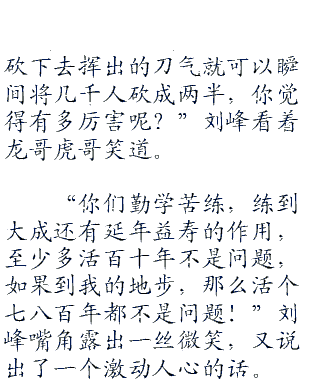 砍下去挥出的刀气就可以瞬
间将几千人砍成两半，你觉
得有多厉害呢？”刘峰看着
龙哥虎哥笑道。
“你们勤学苦练，练到
大成还有延年益寿的作用，
至少多活百十年不是问题，
如果到我的地步，那么活个
七八百年都不是问题！”刘
峰嘴角露出一丝微笑，又说
出了一个激动人心的话。